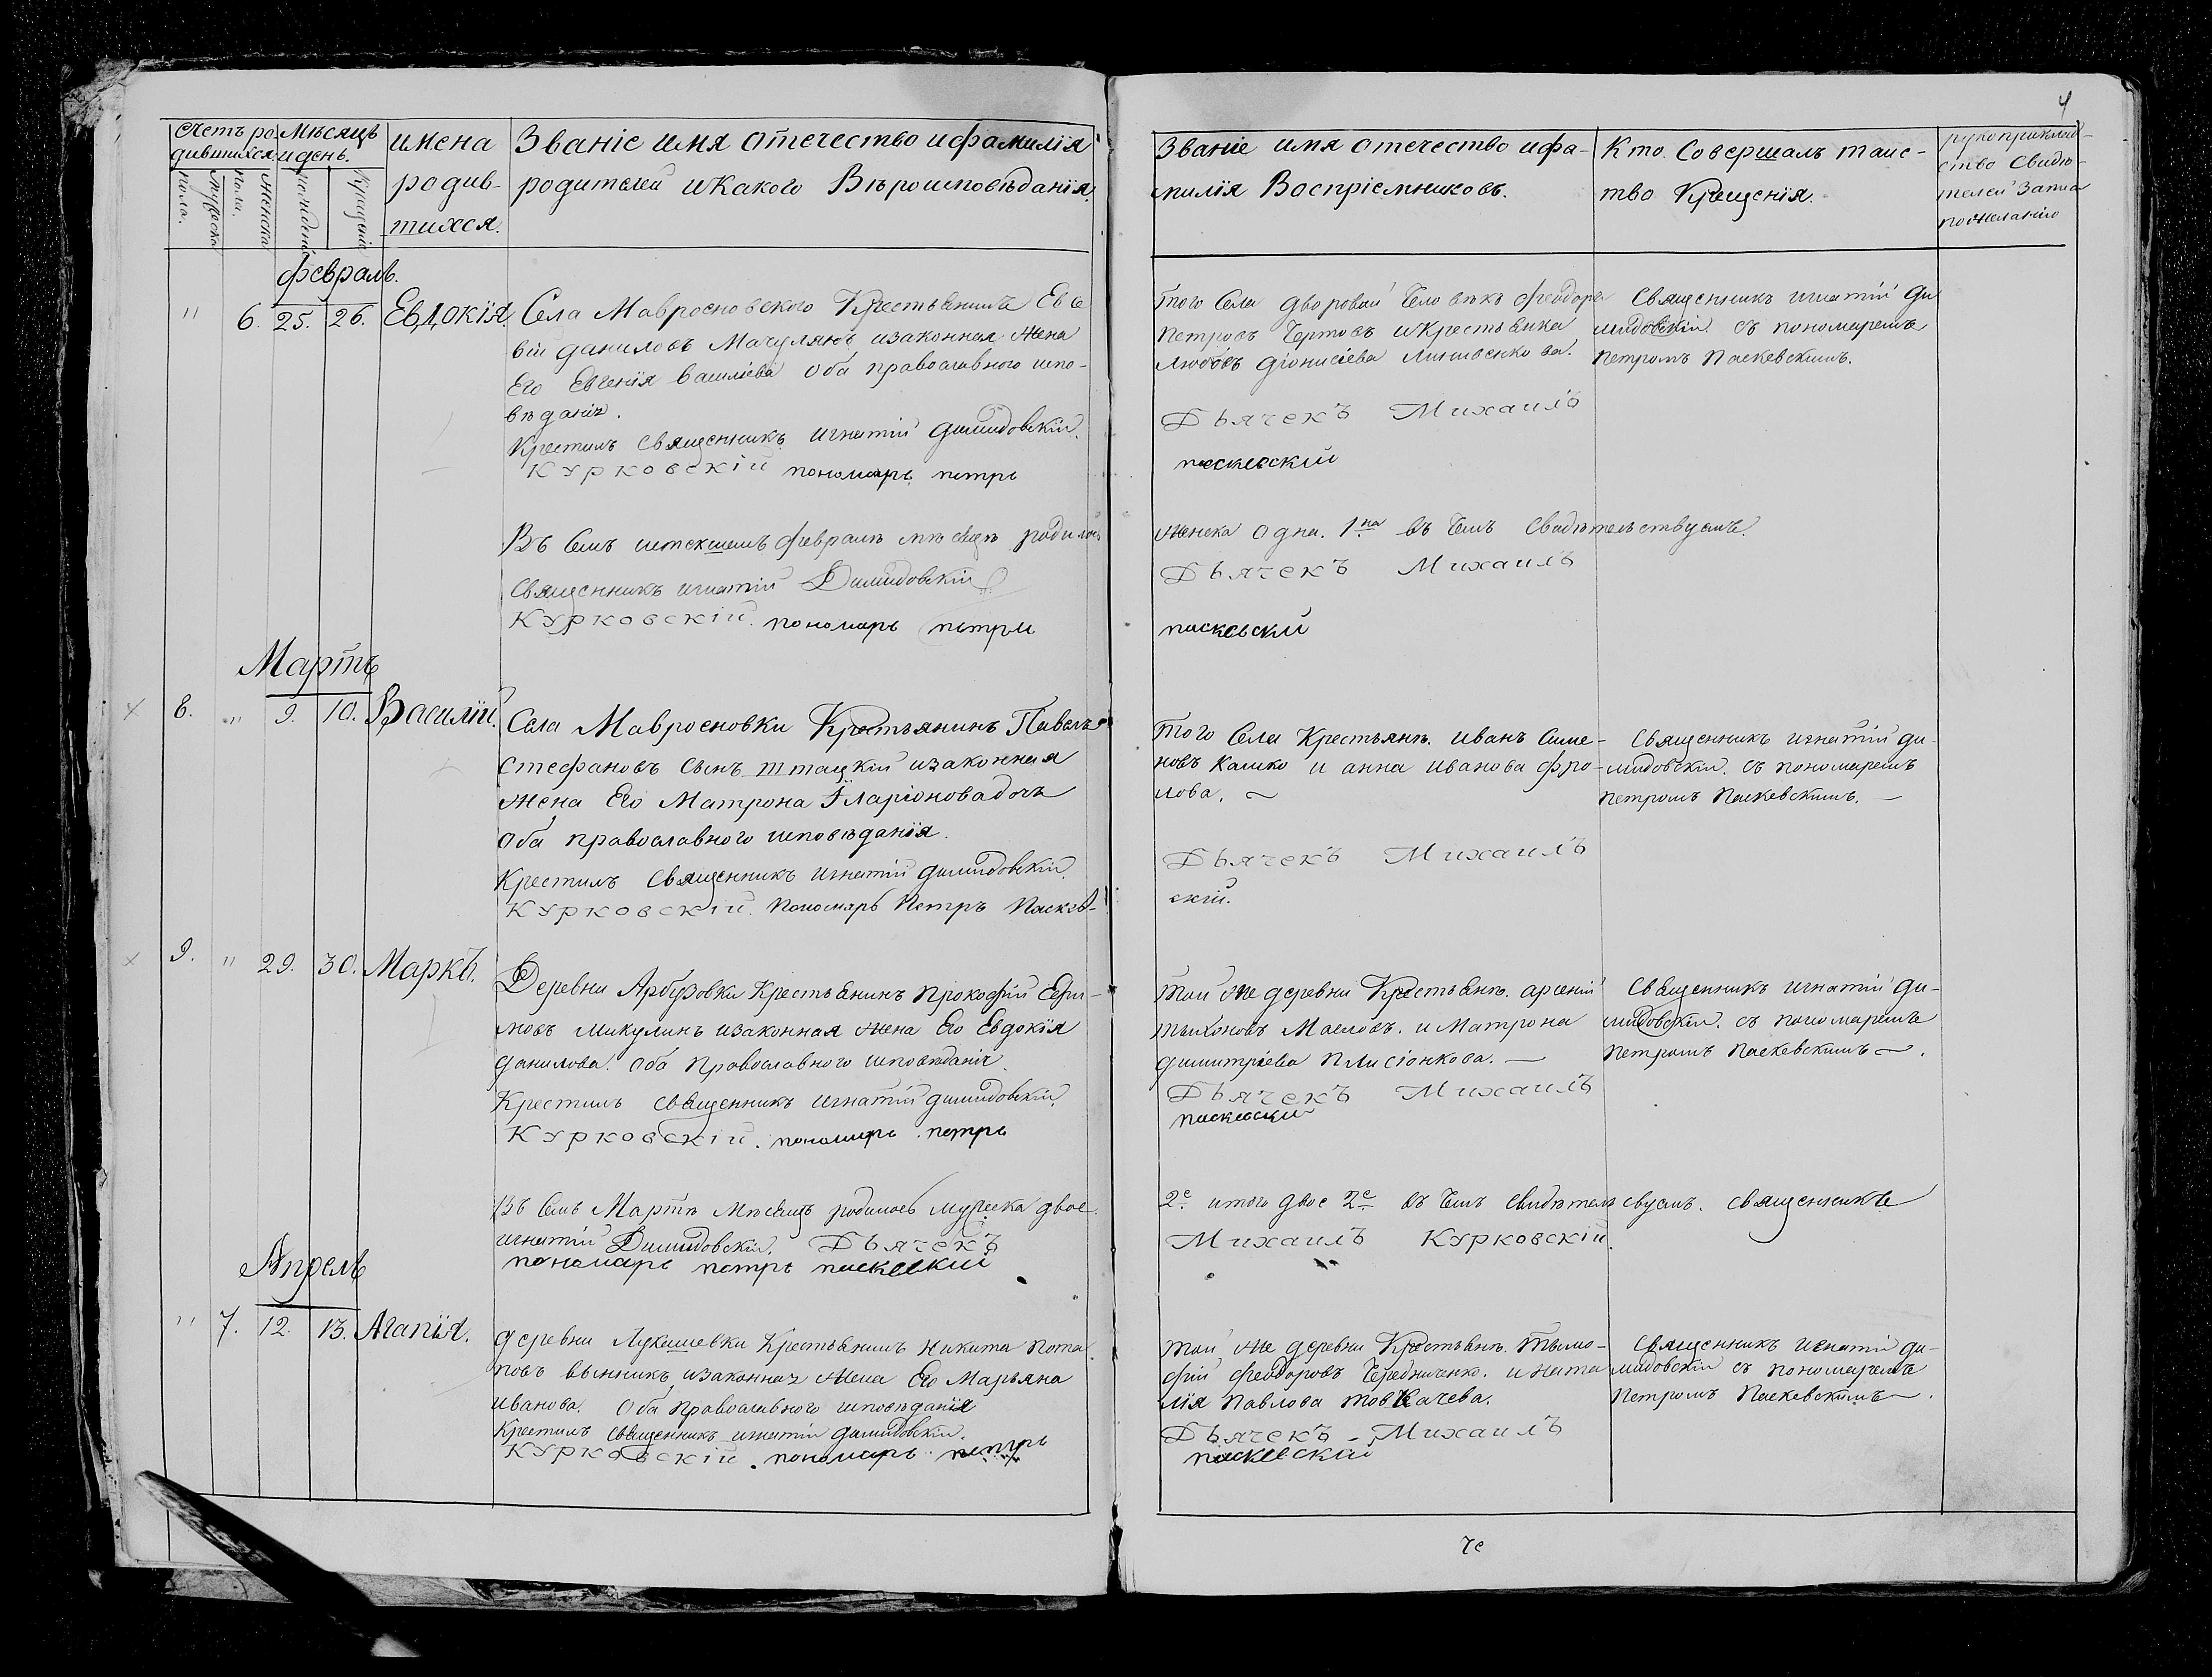 Счетъ ро-
дившихся
Мѣсяцъ
и день.
имена
родив-
шихся.
Званіе имя отечество и фамилія
родителей и какого Вѣроисповѣданія.
Мужеска
пола.
Женска
пола.
рожденія
крещенія
февраль.
" 6. 25. 26. Евдокія.
Села Мавросновского Крестьянинъ Евсе
вій даниловъ Мачулякъ и законная жена
Его Евгенія василіева оба православного испо-
вѣданія.
Крестилъ Священникъ игнатій димидовскій.
Курковскій пономарь петръ
Въ семъ истекшемъ февралѣ мѣсяцѣ родилось
Священникъ игнатій Димидовскій
Курковскій. пономарь петръ
Мартъ
8. " 9. 10. Василій.
Села Мавросновки Крестьянинъ Павелъ
Стефановъ сынъ штацкій и законная
жена Его Матрона Іларіонова дочь
оба православного исповѣданія.
Крестилъ Священникъ игнатій димидовскій.
Курковскій. Пономарь Петръ Паскев-
9. " 29. 30. Маркъ.
Деревни Арбузовки Крестьянинъ прокофій Ефи-
мовъ микулинъ и законная жена Его Евдокія
данилова. оба Православного исповѣданія.
Крестилъ священникъ игнатій димидовскій.
Курковскій. пономарь петръ
Въ семъ Мартѣ Мѣсяцѣ родилось мужеска двое
игнатій Димидовскій. Дьячекъ
пономарь петръ паскевскій
Апрель
" 7. 12. 13. Агапія.
деревни Лукашевки Крестьянинъ никита пота
повъ вынникъ и законная жена Его Марьяна
иванова. Оба православного исповѣданія
Крестилъ священникъ игнатій димидовскій.
Курковскій. пономарь петръ
4
Званіе имя отечество и фа-
милія Воспріемниковъ.
Кто Совершалъ таис-
тво Крещенія.
рукоприклад-
ство свидѣ-
телей записи
по желанію
того Села дворовой человѣкъ феодоръ
петровъ Чертовъ и крестьянка
любовь діонисіева литвенкова.
Священникъ игнатій ди
мидовскій. съ пономаремъ
петромъ паскевскимъ.
Дьячекъ Михаилъ
паскевскій
женска одна. 1на въ чемъ свидѣтельствуемъ.
Дьячекъ Михаилъ
паскевскій
Того Села Крестьянъ. иванъ Симе-
новъ Кашко и анна иванова фро-
лова.
Священникъ игнатій ди
мидовскій. съ пономаремъ
петромъ паскевскимъ.
Дьячекъ Михаилъ
скій.
той же деревни Крестьянъ. арсеній
тихоновъ Масловъ. и Матрона
димитріева плисіонкова.
Священникъ игнатій ди-
мидовскій. съ пономаремъ
петромъ паскевскимъ.
Дьячекъ Михаилъ
паскевскій
2е. итого двое 2е въ чемъ свидѣтельсвуемъ. Священникъ
Михаилъ Курковскій.
той же деревни Крестьянъ. тимо-
фій феодоровъ Чередниченко. и ната
лія павлова товкачева.
Священникъ игнатій ди-
мидовскій съ пономаремъ
Петромъ Паскевскимъ.
Дьячекъ Михаилъ
паскевскій